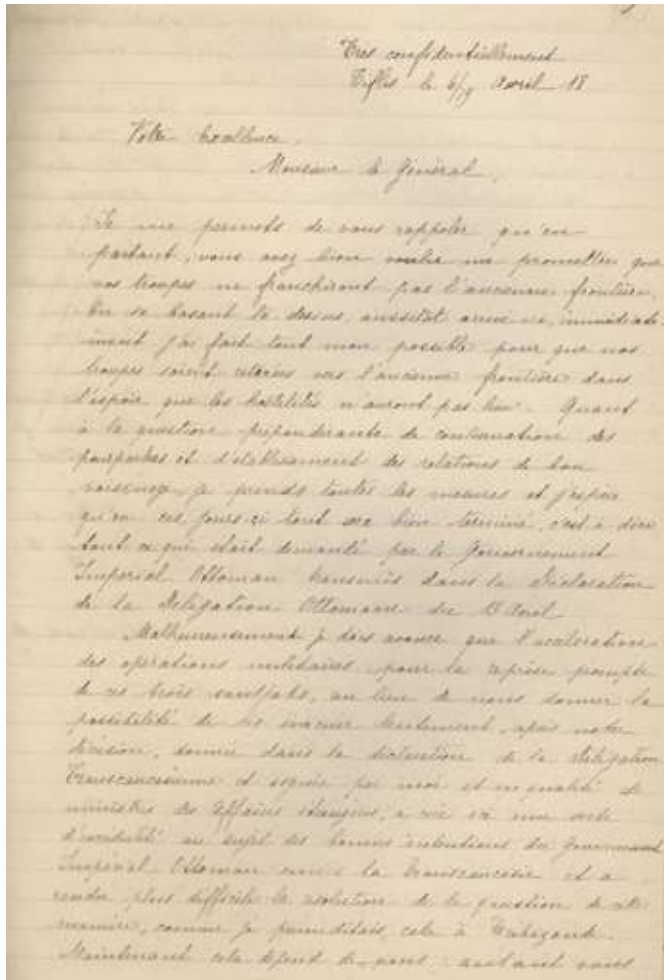 Très confidentiellement
Tiflis le 6/19 Avril 18
Votre Excellence,
Monsieur le Général,
Je me permets de vous rappeler qu'en
partant, vous avez bien voulu me promettre que
vos troupes ne franchiront pas l'ancienne frontière.
En se basant là dessus, aussitôt arrivé ici, immédiate-
ment j'ai fait tout mon possible pour que nos
troupes soient retirées vers l'ancienne frontière dans
l'espoir que les hostilités n'auront pas lieu. Quant
à la question prépondérante de continuation des
pourparlers et d'établissement des relations de bon
voisinage, je prends toutes les mesures et j'espère
qu'en ces jours-ci tout sera bien terminé, c'est à dire
tout ce qui était demandé par le Gouvernement
Impérial Ottoman dans la Déclaration
de la Délégation Ottomane du Avril
Malheureusement je dois avouer que l'accélération
des opérations militaires pour la reprise prompte
de ces trois sandjaks, au lieu de nous donner la
possibilité de les évacuer lentement, après notre
décision, donnée dans la déclaration de la délégation
Transcaucasienne et signée par moi et en qualité de
ministre des affaires étrangères, a créé ici une sorte
au sujet des bonnes intentions du Gouvernement
Impérial Ottoman envers la Transcaucasie et a
rendu plus difficile la solution de la question de cette
manière, comme je cela à Trébizonde.
Maintenant cela dépend de vous: autant vous